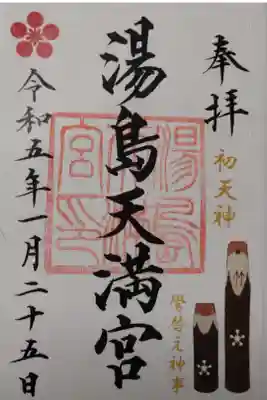 奉拝
初天神
鷽替え神事
湯島天満宮
令和五年一月二十五日